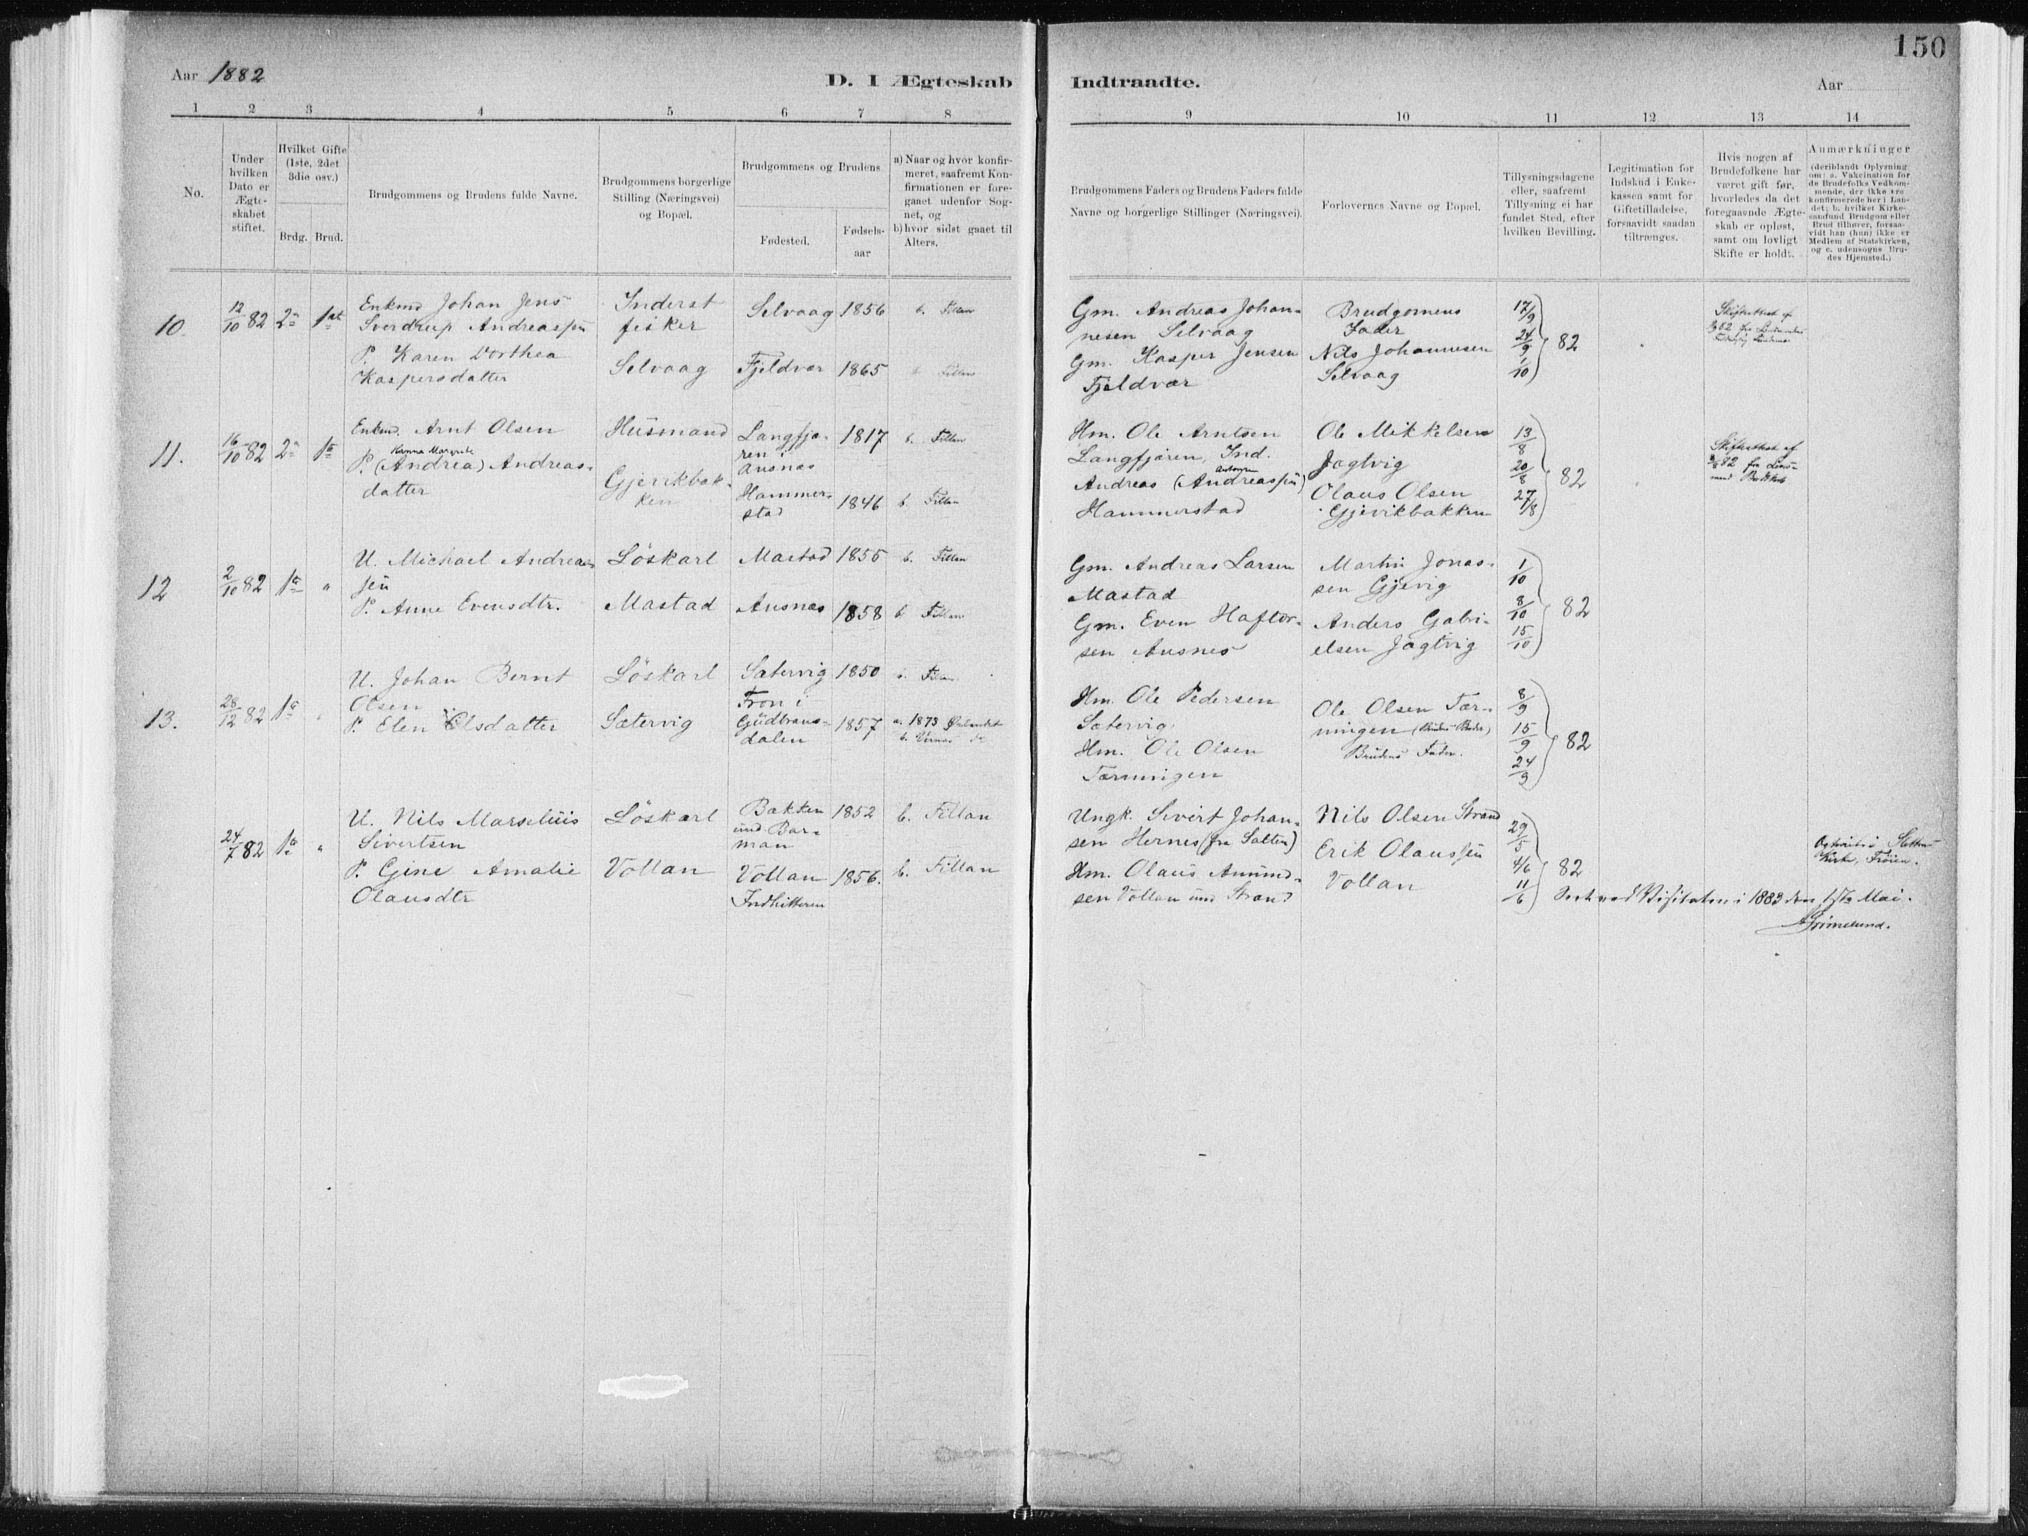 150
Aar 1882
D. I Ægteskab
Indtraadte.
Aar
1 2 3 4 5 6 7 8
9 10 11 12 13 14
No.
Under
hvilken
Dato er
Ægte-
skabet
stiftet.
Hvilket Gifte
(1ste, 2det
3die osv.)
Brdg. Brud.
Brudgommens og Brudens fulde Navne.
Brudgommens borgerlige
Stilling (Næringsvei)
og Bopæl.
Brudgommens og Brudens
Fødested.
Fødsels-
aar
a) Naar og hvor konfir-
meret, saafremt Kon-
firmationen er fore-
gaaet udenfor Sog-
net, og
b) hvor sidst gaaet til
Alters.
Brudgommens Faders og Brudens Faders fulde
Navne og borgerlige Stillinger (Næringsvei).
Forlovernes Navne og Bopæl.
Tillysningsdagene
eller, saafremt
Tillysning ei har
fundet Sted, efter
hvilken Bevilling.
Legitimation for
Indskud i Enke-
kassen samt for
Giftetilladelse,
forsaavidt saadan
tiltrænges.
Hvis nogen af
Brudefolkene har
været gift før,
hvorledes da det
foregaaende Ægte-
skab er opløst,
samt om lovligt
Skifte er holdt.
Anmærkninger
(deriblandt Oplysning
om: a. Vakcination for
de Brudefolks Vedkom-
mende, der ikke ere
konfirmerede her i Lan-
det; b. hvilket Kirke-
samfund Brudgom eller
Brud tilhører, forsaa-
vidt han (hun) ikke er
Medlem af Statskirken,
og c. udensogns Bru-
des Hjemsted.)
10. 12/10 82 2 1st
Enkmd Johan Jens
Sverdrup Andreassen
P. Karen Dorthea
Kaspersdatter
Inderst
fisker
Selvaag
Selvaag 1856 b. Fillan
Fjeldvær 1865 b. Fillan
Gm. Andreas Johan-
nesen Selvaag
Gm. Kasper Jensen
Fjeldvær
Brudgomens
Fader
Nils Johannesen
Selvaag
17/9
24/9
1/10
82
11. 16/10 82 2 1
Enkmd. Arnt Olsen
P. (Andrea) Andreas-
datter
Husmand
Gjevikbak-
ken
Langfjæ-
ren i
Ansnes
1817 b. Fillan
Hammer-
stad
1846 b. Fillan
Hm. Ole Arntsen
Langfjæren, Ind.
Andreas (Andreassen)
Hammerstad
Ole Mikkelsen
Jægtvig
Olaus Olsen
Gjevikbakken
13/8
20/8
27/8
82
12 2/10 82 1 "
U. Michael Andreas-
sen
P. Anne Evensdtr.
Löskarl
Mastad
Mastad 1855 b. Fillan
Ansnes 1858 b. Fillan
Gm. Andreas Larsen
Mastad
Gm. Even Haftor-
sen Ansnes
Martin Jonas-
sen Gjevig
Anders Gabri-
elsen Jægtvig
1/10
8/10
15/10
82
13. 28/12 82 1 "
U. Johan Bernt
Olsen
P. Elen Olsdatter
Löskarl
Sætervig
Sætervig 1850 b. Fillan
Fron i
Gudbrans-
dalen
1857 a. 1873
Hm. Ole Pedersen
Sætervig.
Hm. Ole Olsen
Tærningen
Ole Olsen Tær-
ningen
Brudens Fader.
8/9
15/9
24/9
82
24/7 82 1 "
U. Nils Marselius
Sivertsen
P. Gine Amalie
Olausdtr
Löskarl
Vollan
Bakken
und. Bar-
man
1852 b. Fillan
Vollan
Indhitteren
1856. b. Fillan
Ungk. Sivert Johan-
sen Hernes (fra Salten)
Hm. Olaus Amund-
sen Vollan und Strand
Nils Olsen Strand
Erik Olaussen
Vollan
29/5
4/6
11/6
82
Kirke, Frøien.
Visitatsen i 1883 den Mai.
Grimelund.